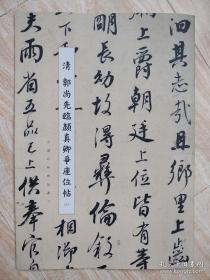 其志哉且鄉里上齒
上爵朝廷上位皆有等
明長幼故得彝倫叙
清 郭尚先臨顔真卿争座位帖
相御
夫兩省五品已上供奉官自